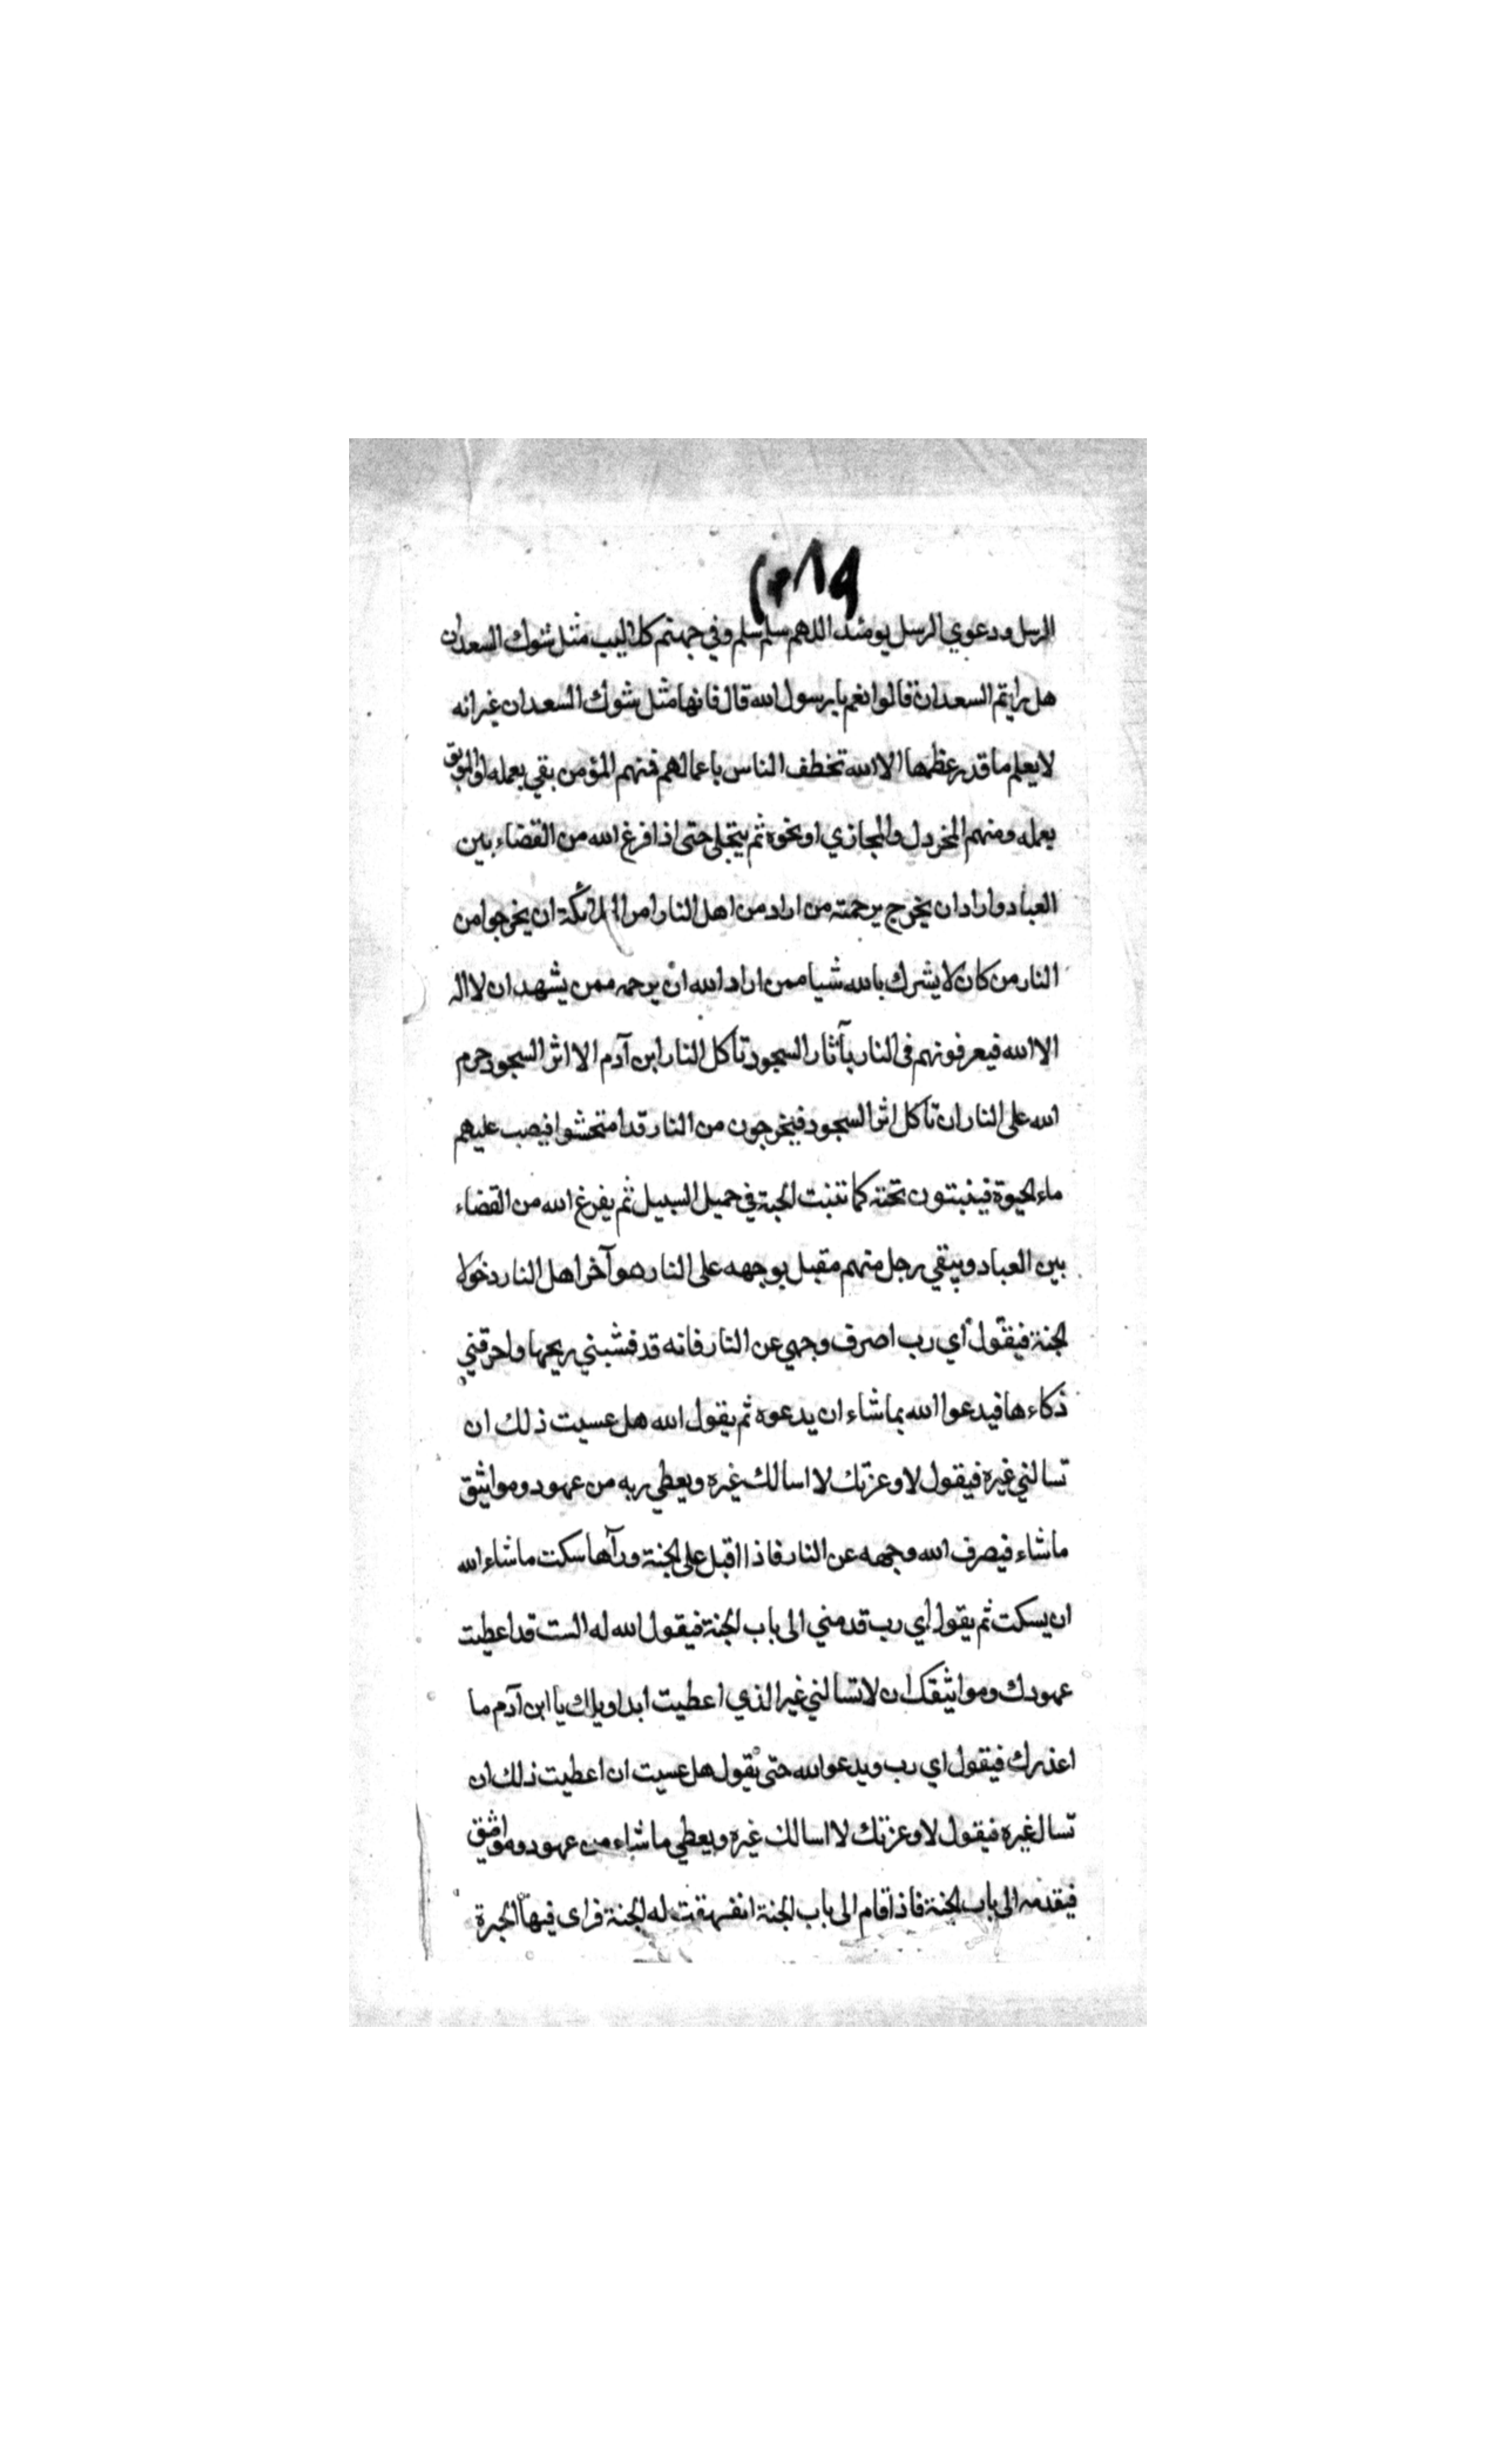 الرسل ودعوي الرسل يومئذ اللهم سلم سلم وفي جهنم كلاليب مثل شوك السعدان
هل رايتم السعدان قالوا نعم يا رسول الله قال فانها مثل شوك السعدان غير انه
لا يعلم ما قدر عظمها الا الله تخطف الناس باعمالهم فمنهم المؤمن بقي بعمله او الموبق
بعمله ومنهم المخردل والمجازي او نحوه ثم يتجلى حتى اذا فرغ الله من القضاء بين
العباد واراد ان يخرج برحمته من اراد من اهل النار امر الملائكة ان يخرجوا من
النار من كان لا يشرك بالله شيا ممن اراد الله ان يرحمه ممن يشهد ان لا اله
الا الله فيعرفونهم في النار بآثار السجود تأكل النار ابن آدم الا اثر السجود حرم
الله على النار ان تأكل اثر السجود فيخرجون من النار قد امتحشوا فيصب عليهم
ماء الحيوة فينبتون تحته كما تنبت الحبة في حميل السيل ثم يفرغ الله من القضاء
بين العباد ويبقي رجل منهم مقبل بوجهه على النار هو آخر اهل النار دخولا
الجنة فيقول أي رب اصرف وجهي عن النار فانه قد قشبني ريحها واحرقني
ذكاءها فيدعوا الله بما شاء ان يدعوه ثم يقول الله هل عسيت ذلك ان
تسالني غيره فيقول لا وعزتك لا اسالك غيره ويعطي ربه من عهود ومواثيق
ما شاء فيصرف الله وجهه عن النار فاذا اقبل على الجنة ورآها سكت ما شاء الله
ان يسكت ثم يقول أي رب قدمني الى باب الجنة فيقول الله له الست قد اعطيت
عهودك ومواثيقك ان لا تسالني غير الذي اعطيت ابدا ويلك يا ابن آدم ما
اعذرك فيقول اي رب ويدعو الله حتى يقول هل عسيت ان اعطيت ذلك ان
تسال غيره فيقول لا وعزتك لا اسالك غيره ويعطي ما شاء من عهود ومواثيق
فيقدمه الى باب الجنة فاذا قام الى باب الجنة انفهقت له الجنة فراى فيها الحبرة